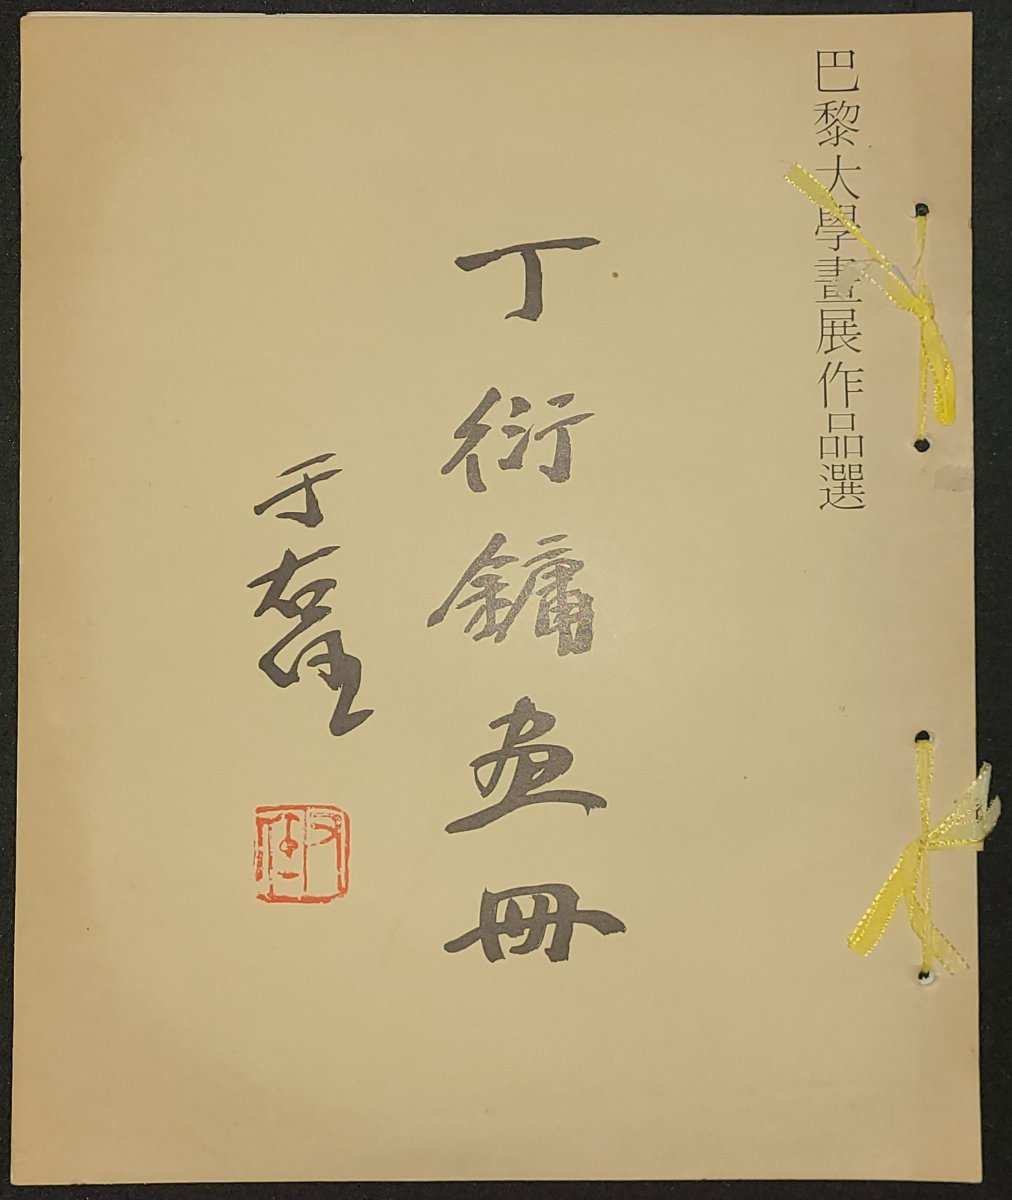 巴黎大學畫展作品選
丁衍鏞画冊
于右任
右任